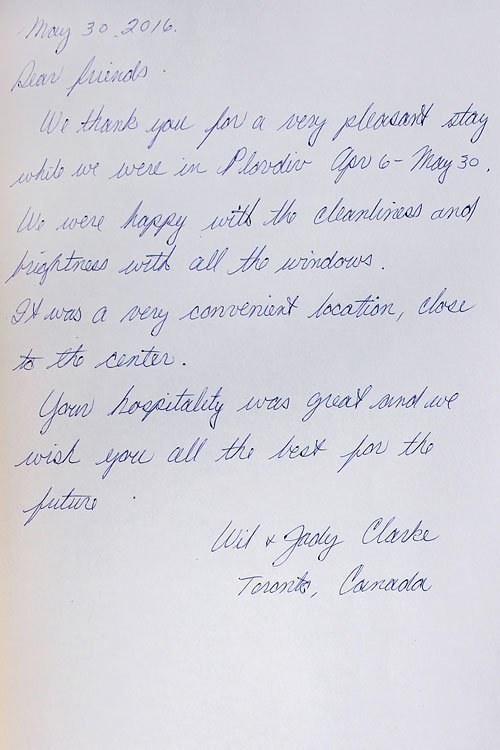 May 30, 2016.
Dear friends.
We thank you for a very pleasant stay
while we were in Plovdiv Apr 6 - May 30.
We were happy with the cleanliness and
brightness with all the windows.
It was a very convenient location, close
to the center.
Your hospitality was great and we
wish you all the best for the
future.
Wil & Judy Clarke
Toronto, Canada